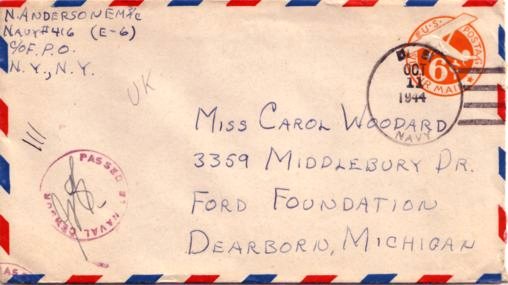 N. ANDERSON EM 2/C
NAVY #416 (E-6)
C/O F.P.O.
N.Y., N.Y.
U.S. POSTAGE
6¢
AIR MAIL
OCT
11
1944
NAVY
UK
III
MISS CAROL WOODARD
3359 MIDDLEBURY DR.
FORD FOUNDATION
DEARBORN, MICHIGAN
PASSED BY NAVAL CENSOR
AS